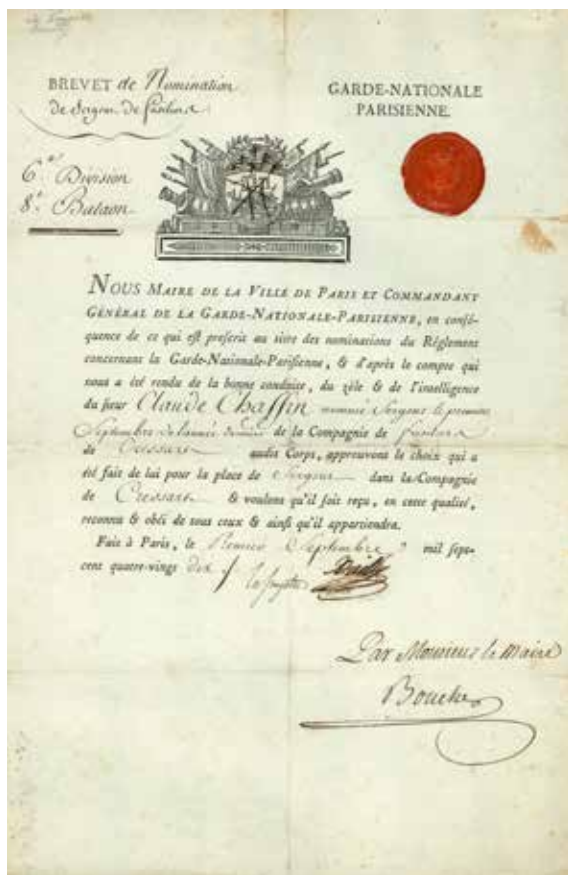 BREVET de Nomination
de Sergent de fusiliers
GARDE-NATIONALE
PARISIENNE.
6e. Division
8e. Bataon
NOUS MAIRE DE LA VILLE DE PARIS ET COMMANDANT
GÉNÉRAL DE LA GARDE-NATIONALE-PARISIENNE, en consé-
quence de ce qui est prescrit au titre des nominations du Réglement
concernant la Garde-Nationale-Parisienne, & d'après le compte qui
nous a été rendu de la bonne conduite, du zèle & de l'intelligence
du sieur Claude Chaffin nommé Sergent le premier
Septembre de l'année dernière de la Compagnie de fusiliers
de audit Corps, approuvons le choix qui a
été fait de lui pour la place de Sergent dans la Compagnie
de & voulons qu'il soit reçu, en cette qualité,
reconnu & obéi de tous ceux & ainsi qu'il appartiendra.
Fait à Paris, le Premier Septembre mil sept-
cent quatre-vingt dix /. lafayette
Par Monsieur le Maire
Boucher